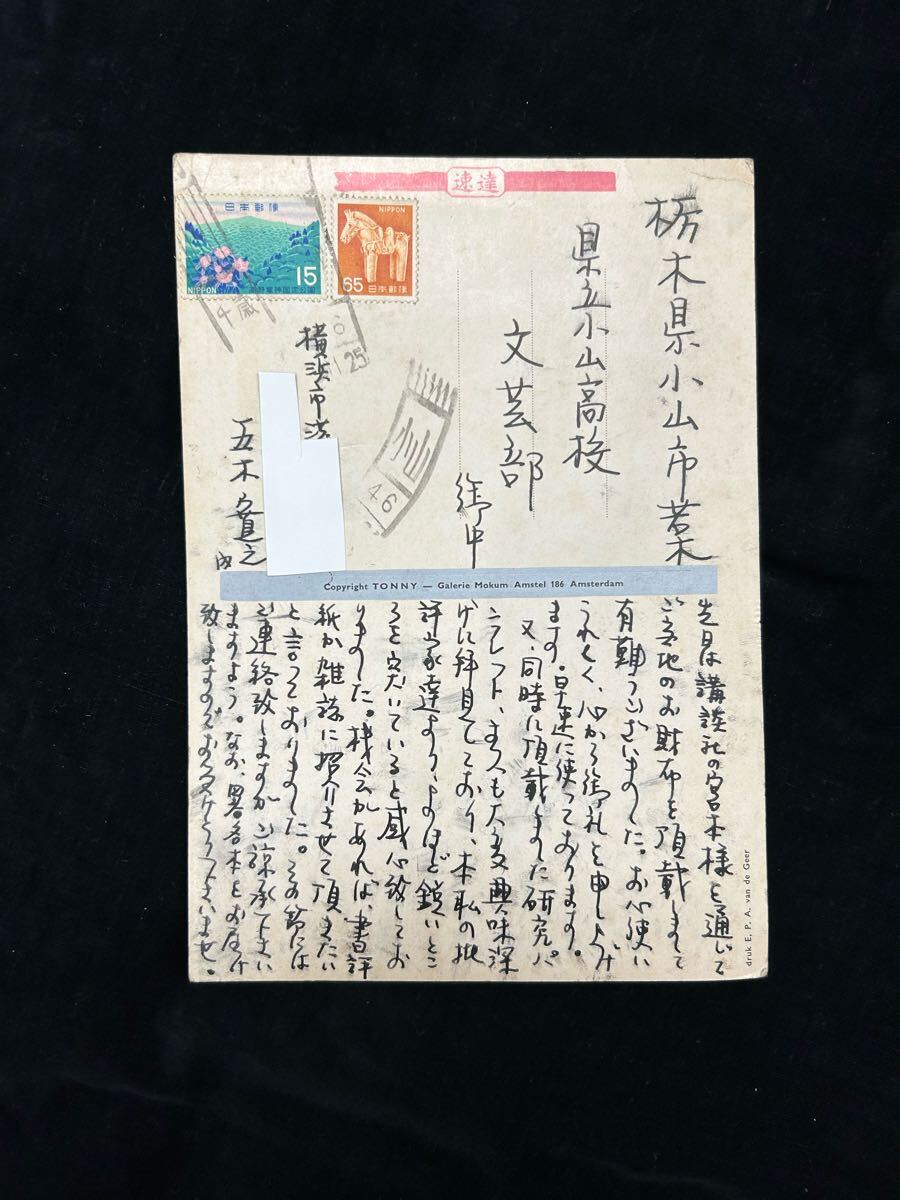 速達
日本郵便
15
NIPPON
NIPPON
65
日本郵便
栃木県小山市若木
県立小山高校
文芸部
御中
横浜市
五木寛之
内
小山
46
25
Copyright TONNY — Galerie Mokum Amstel 186 Amsterdam
先日は講談社の宮本様を通じて
ご当地のお財布を頂戴しまして
有難うございました。お心使い
うれしく、心から御礼を申し上げ
ます。早速に使っております。
又、同時に頂戴しました研究パ
ンフレット、主人も大変興味深
げに拝見しており、本職の批
評家達より、よほど鋭いとこ
ろを突いていると感心致してお
りました。機会があれば、書評
紙か雑誌に紹介させて頂きたい
と言っておりました。その節には
ご連絡致しますがご諒承下さい
ますよう。なお、署名本をお届け
致しますのでお受けとり下さいませ。
druk E. P. A. van de Geer